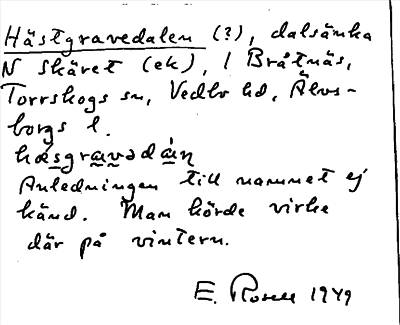 Hästgravedalen (?), dalsänka
N Skäret (ek), i Bråtnäs,
Torrskogs sn, Vedbo hd, Älvs-
borgs l.
Anledningen till namnet ej
känd. Man körde virke
där på vintern.
E. Rosell 1949